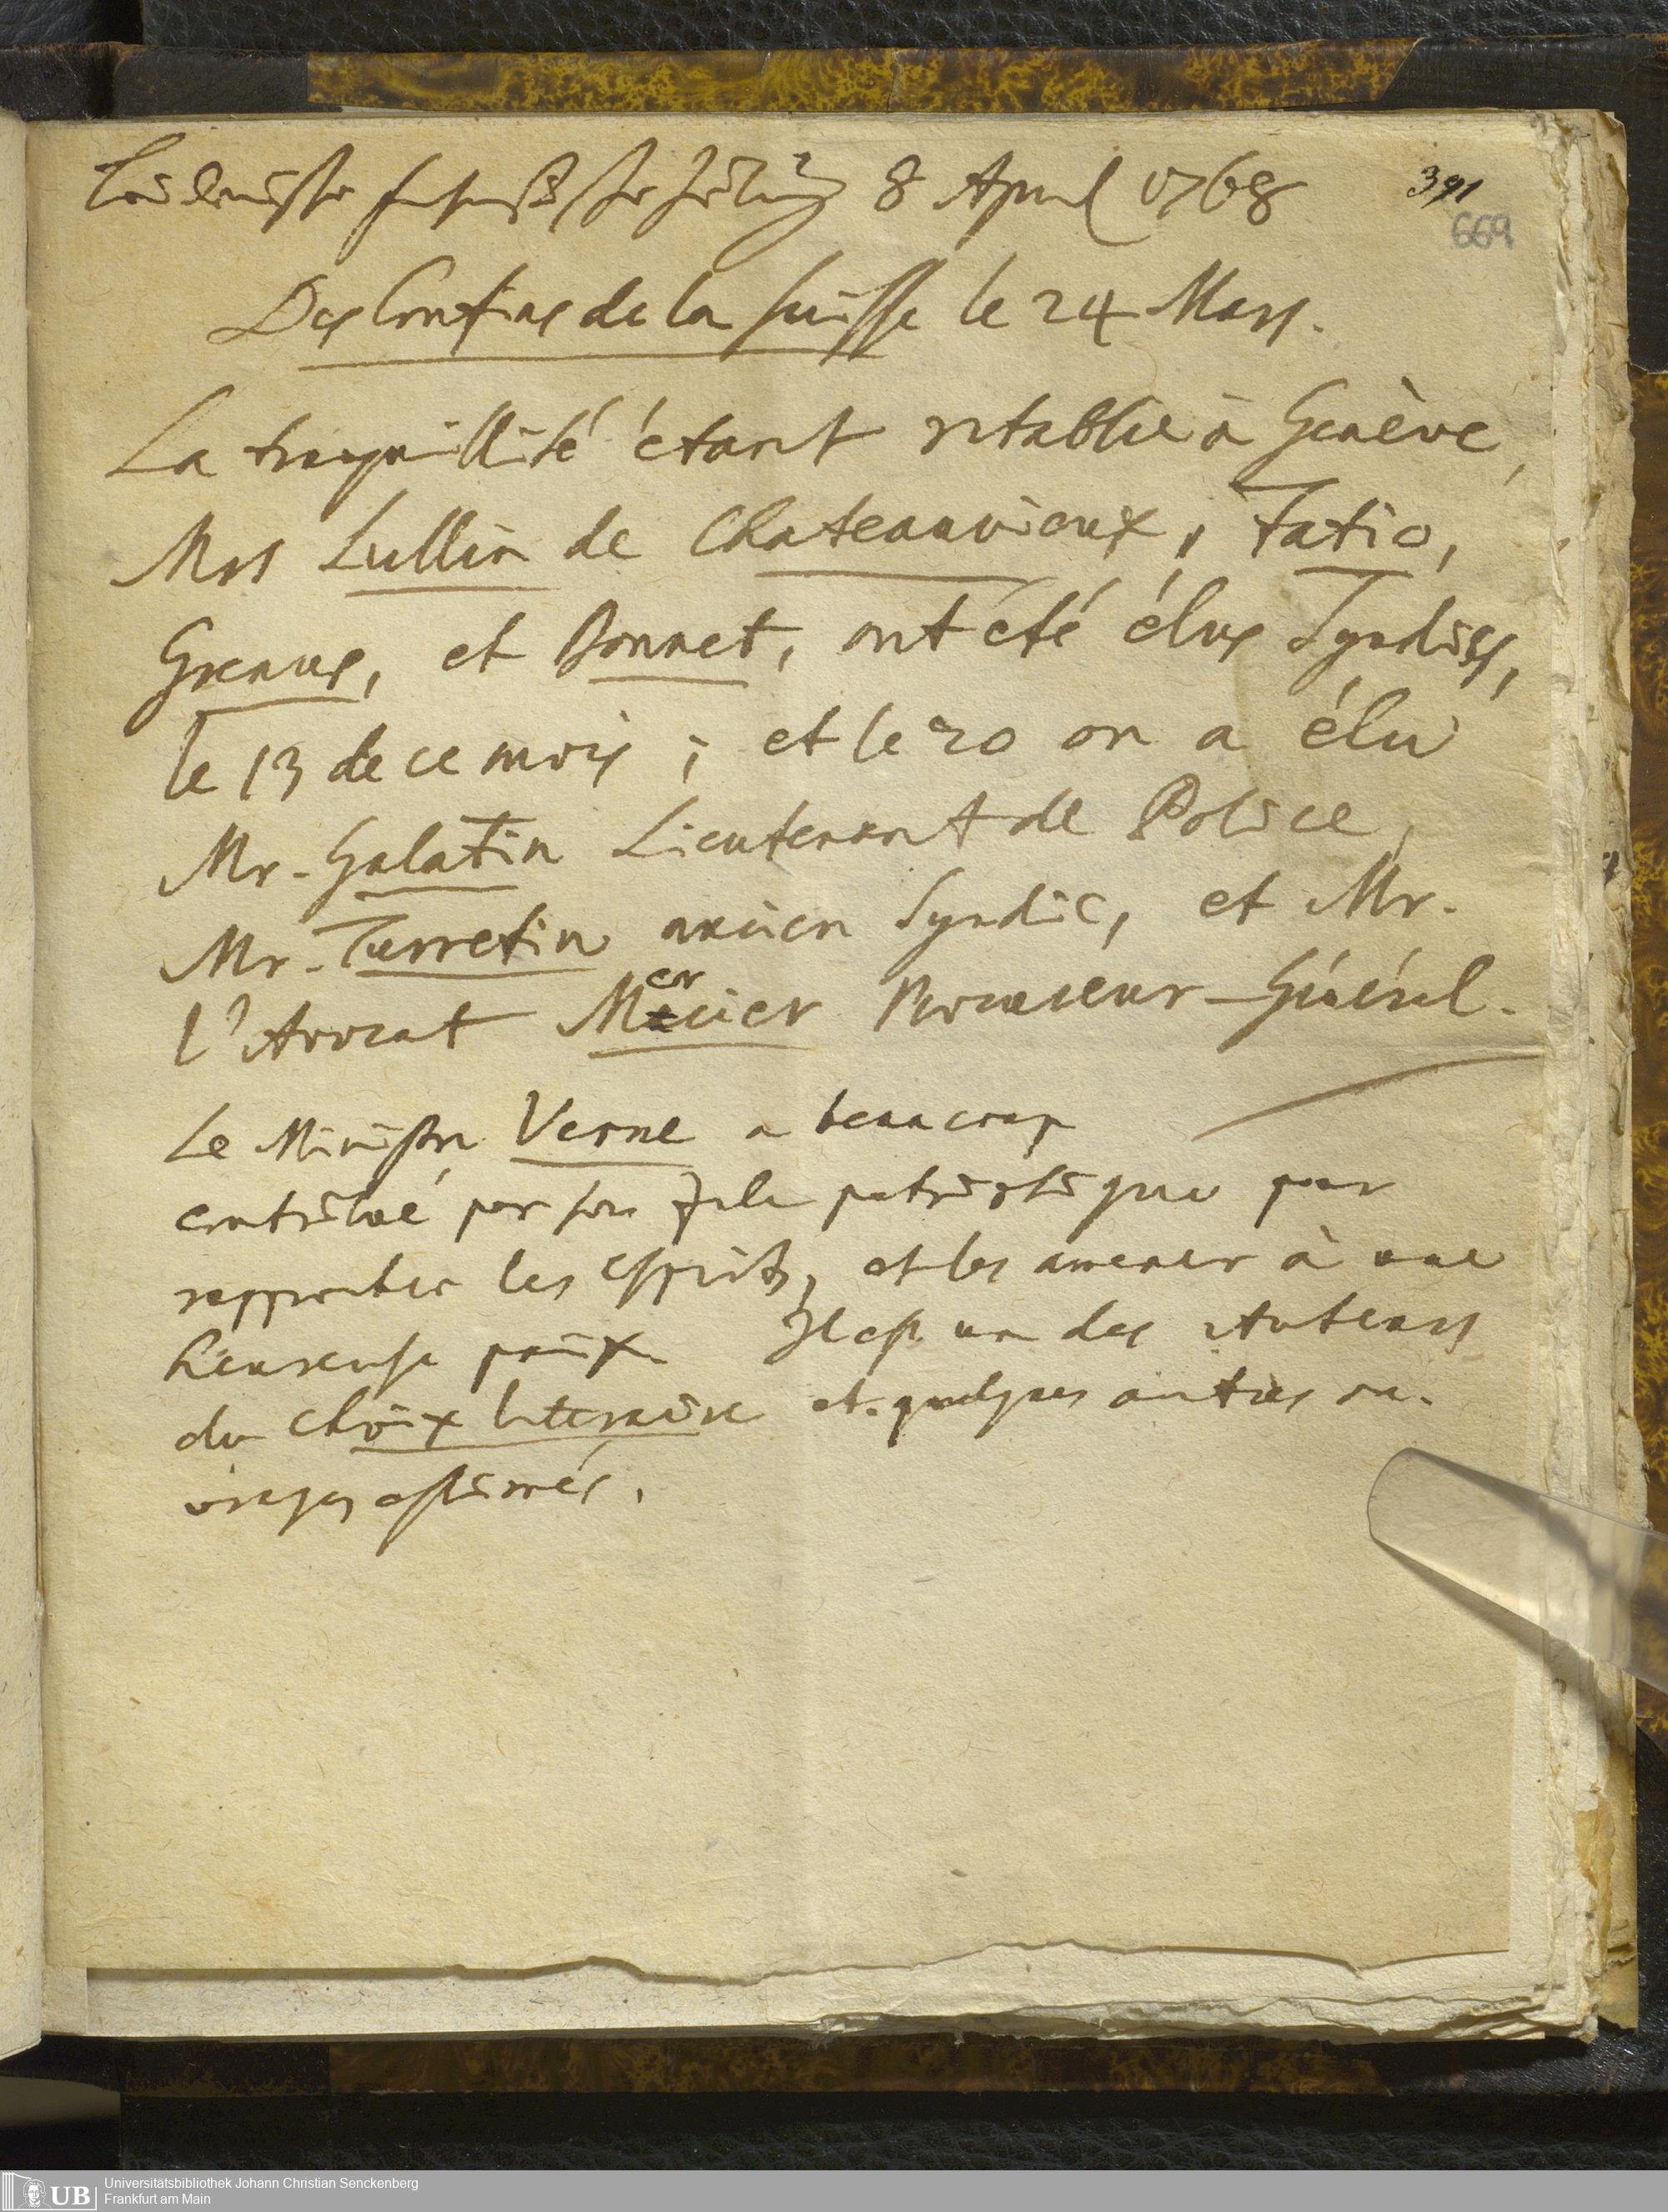 8 April 1768
391
669
Des Confins de la Suisse le 24 Mars.
La tranquillité étant retablie à Genève,
Mrs Lullin de Chateauvieux, Fatio,
Grenus, et Bonnet, ont été élus Syndics,
le 13 de ce mois; et le 20 on a élu
Mr. Galatin Lieutenant de Police,
Mr. Turretin ancien Syndic, et Mr.
l'Avocat Mercier Procureur-Général.
Le Ministre Verne a beaucoup
contribué par son zele patriotique pour
rapprocher les esprits, et les amener à une
heureuse paix. Il est un des Auteurs
du Choix literaire et quelques autres ou-
vrages estimés.
UB Universitätsbibliothek Johann Christian Senckenberg
Frankfurt am Main